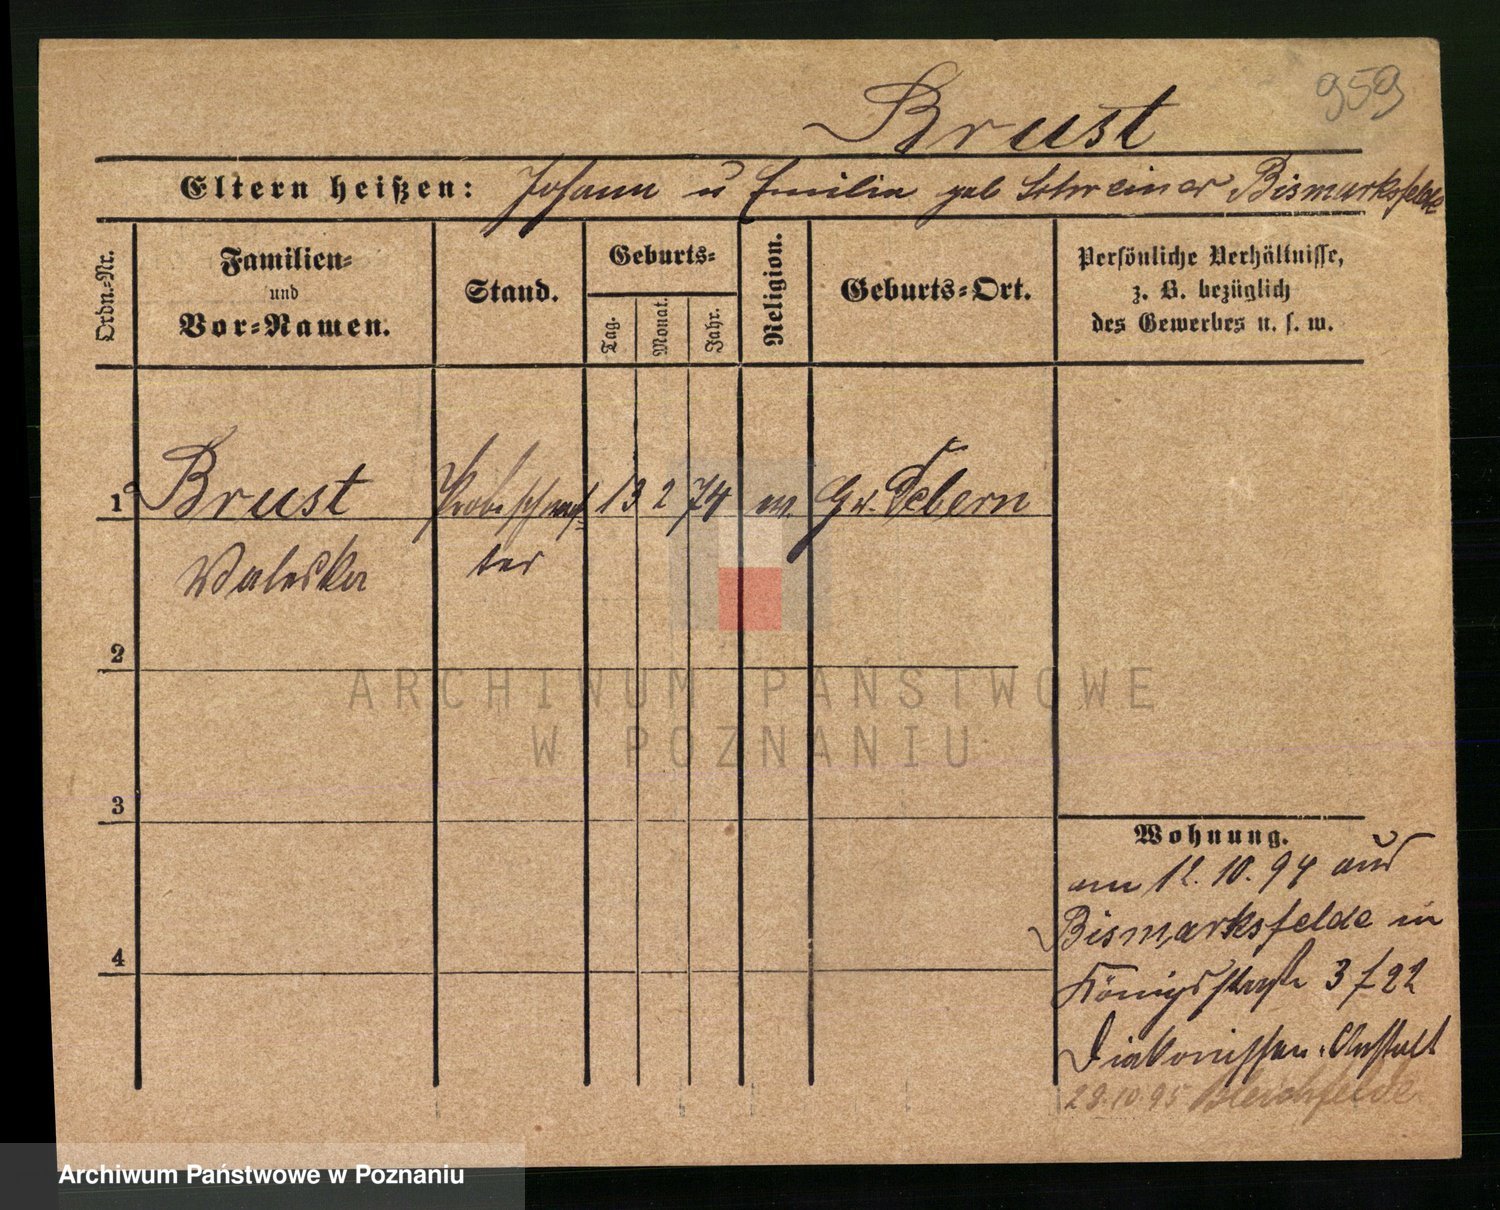 959
Brust
Eltern heißen: Johann u Emilie geb Schreiner Bismarksfelde
Ordn.-Nr.
Familien-
und
Vor-Namen.
Stand.
Geburts-
Tag.
Monat.
Jahr.
Religion.
Geburts-Ort.
Persönliche Verhältnisse,
z. B. bezüglich
des Gewerbes u. s. w.
1 Brust Probeschwes- 13 2 74 ev. Gr.
Valeska ter
2
3
4
Wohnung.
am 12.10.94 aus
Bismarksfelde in
Königsstraße 3 f 22
Diakonissen-Anstalt
28.10.95
ARCHIWUM PAŃSTWOWE
W POZNANIU
Archiwum Państwowe w Poznaniu